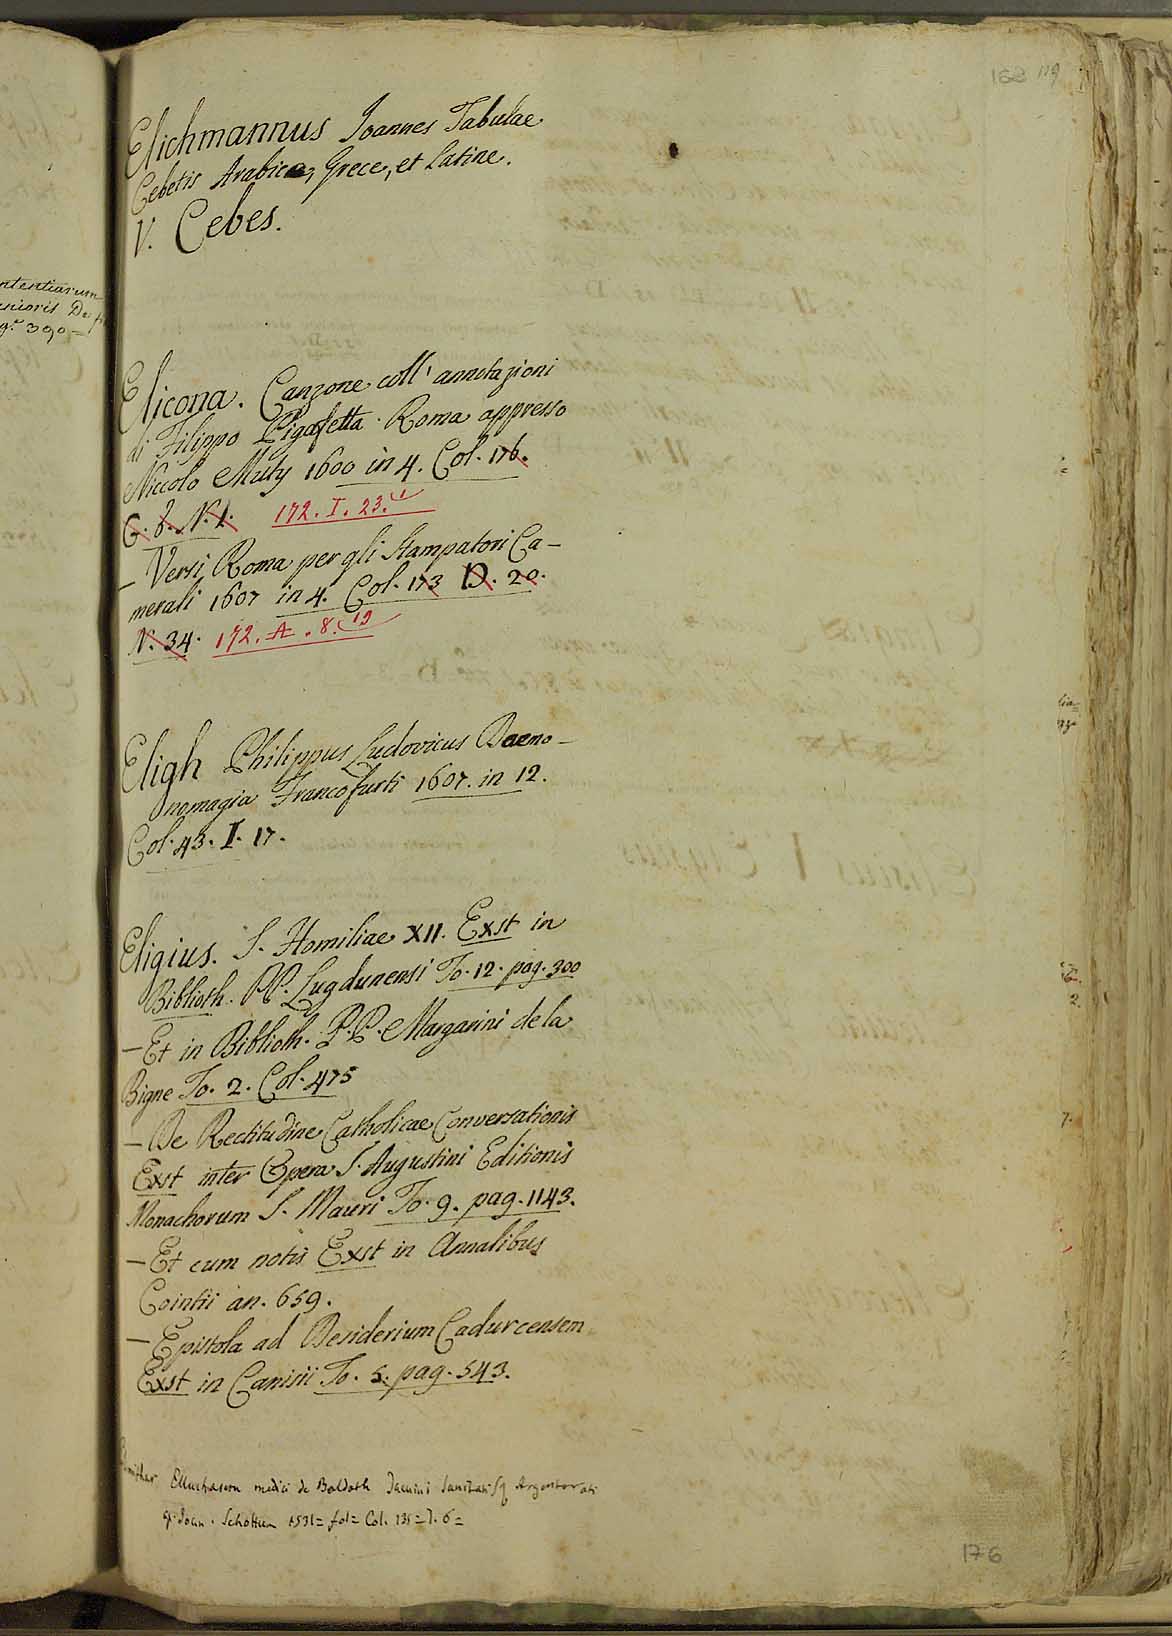 168 119
Elichmannus Ioannes Tabulae
Cebetis Arabice, Grece, et Latine.
V. Cebes.
Elicona. Canzone coll' annotazioni
di Filippo Pigafetta. Roma appresso
Niccolo Muty 1600 in 4. Col. 176.
G. 8. N. 1. 172. I. 23.
— Versi Roma per gli Stampatori Ca-
merali 1607 in 4. Col. 173 D. 20.
N. 34. 172. A. 8. 19
Eligh Philippus Ludovicus Daemo-
nomagia Francofurti 1607. in 12.
Col. 43. I. 17.
Eligius. S. Homiliae XII. Exst in
Biblioth. PP. Lugdunensi To. 12. pag. 300
— Et in Biblioth. P.P. Margarini de la
Bigne To. 2. Col. 475
— De Rectitudine Catholicae Conversationis
Exst inter Opera S. Augustini Editionis
Monachorum S. Mauri To. 9. pag. 1143.
— Et cum notis Exst in Annalibus
Cointii an. 659.
— Epistola ad Desiderium Cadurcensem
Exst in Canisii To. 5. pag. 543.
Elluchasem medici de Baldath Argentorati
Joan. Schottum 1531 = fol = Col. 135 = I. 6 =
176
ntentiarum
unioris De
g.ª 390 =